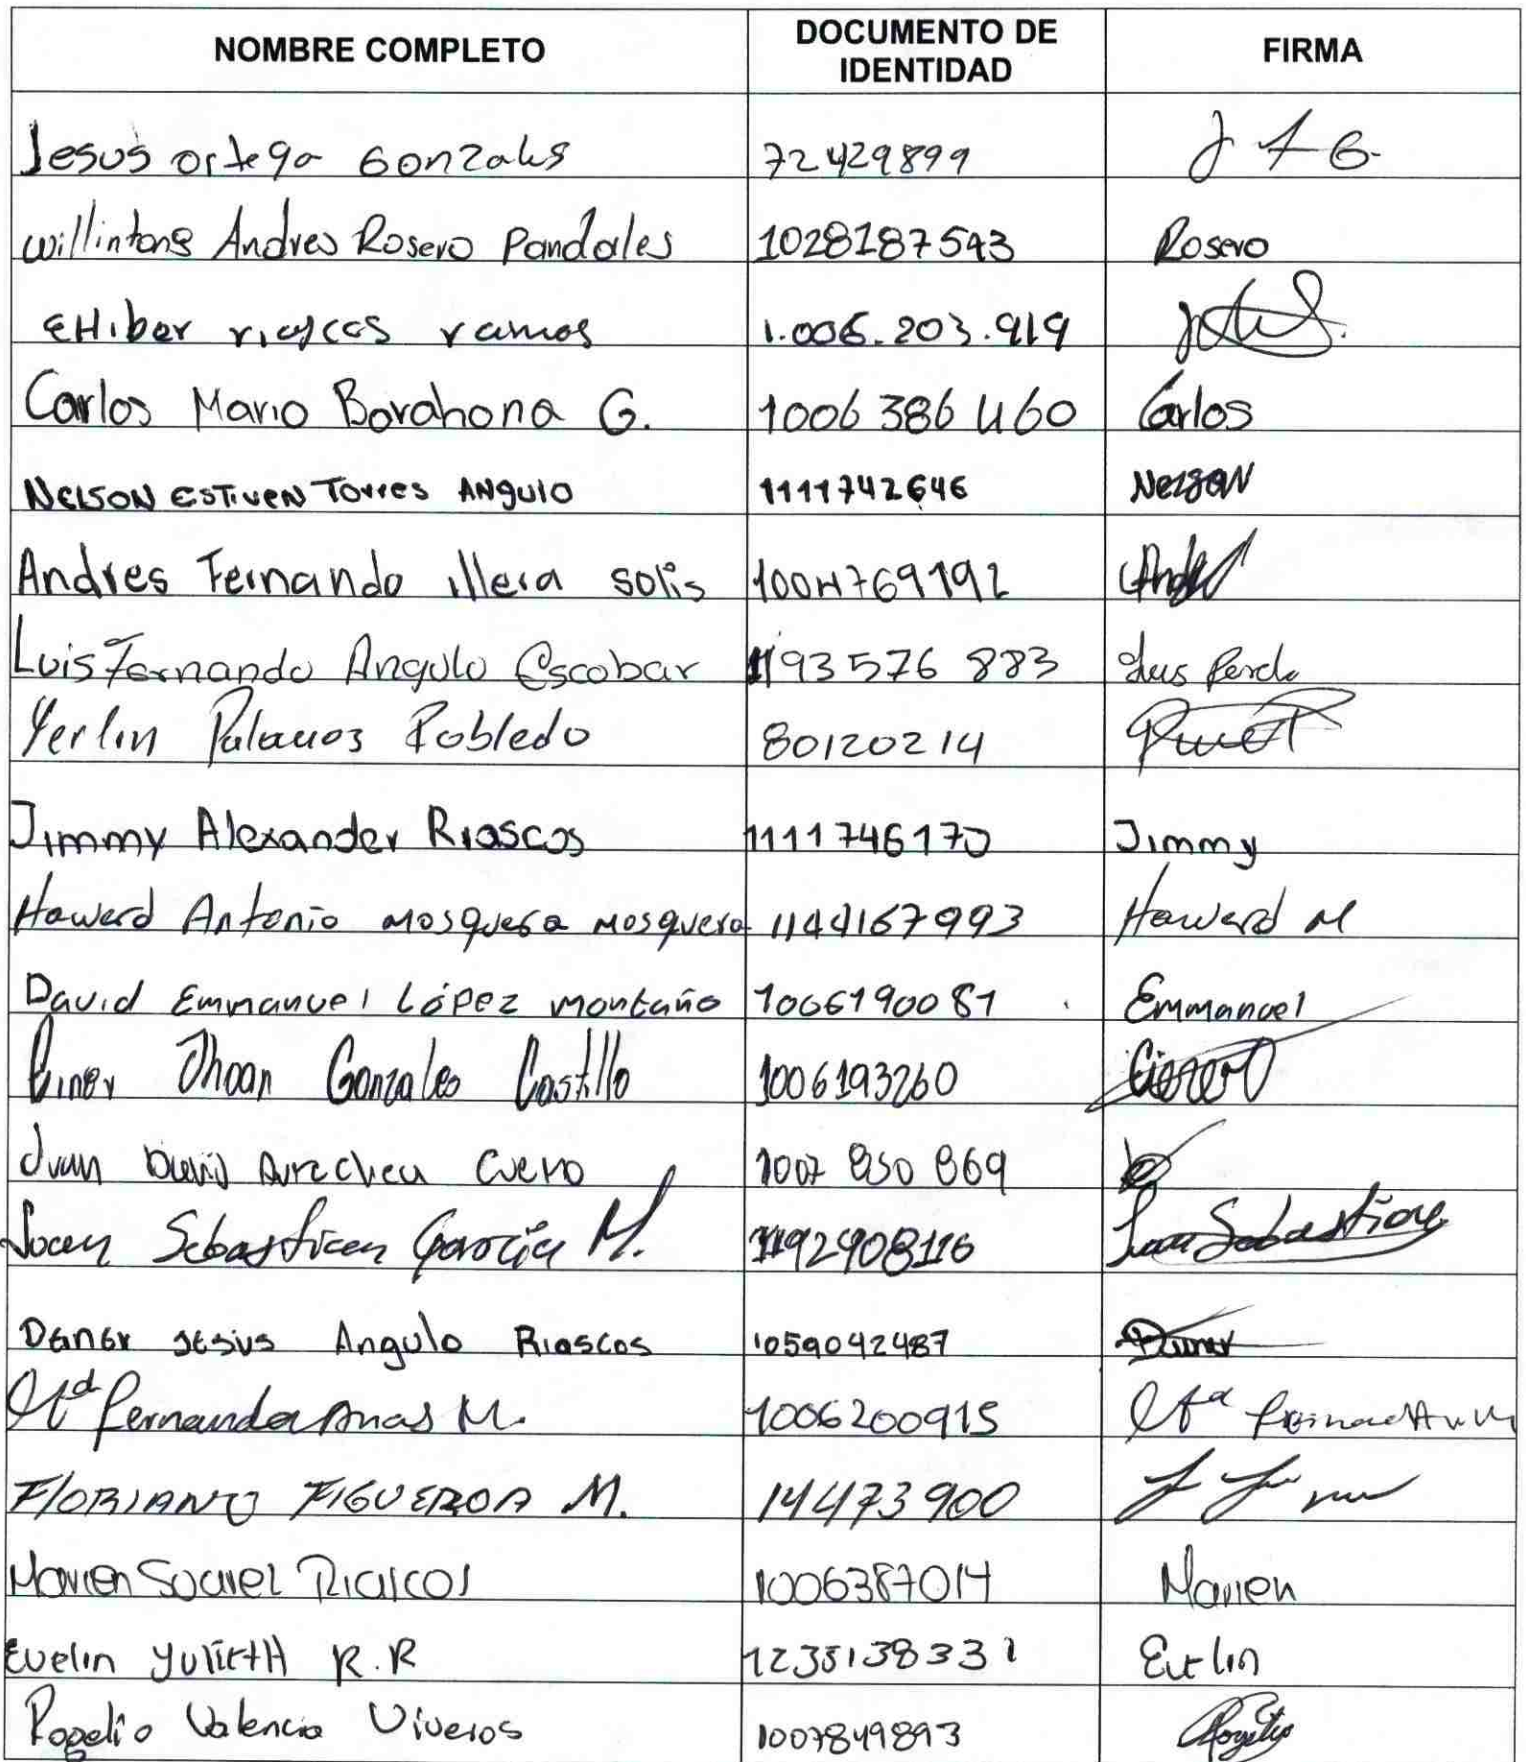 NOMBRE COMPLETO DOCUMENTO DE IDENTIDAD FIRMA
Jesus ortega Gonzales 72429899 J A G.
willintong Andres Rosero Pandales 1028187543 Rosero
EHiber riascos ramos 1.006.203.919
Carlos Mario Barahona G. 1006386460 Carlos
NELSON ESTIVEN Torres ANgulo 1111742646 Nelson
Andres Fernando illera solis 1004769192 Andres
Luis Fernando Angulo Escobar 1193576883 Luis
Yerlin Palacios Robledo 80120214
Jimmy Alexander Riascos 1111746170 Jimmy
Howard Antonio Mosquera Mosquera 1144167993 Howard M
David Emmanuel López Montaño 1006190081 Emmanuel
Einer Jhoan Gonzales Castillo 1006193260
Juan David Aurechea Cuero 1007850869
Juan Sebastian Garcia M. 1192908116 Juan Sebastian
Daner Jesus Angulo Riascos 1059042487 Daner
Ma Fernanda Arias M. 1006200915 Ma
FlORIANO FIGUEROA M. 14473900
Marien Suarez Riascos 1006387014 Marien
Evelin yulieth R.R 1235138331 Evelin
Rogelio Valencia Viveros 1007849893 Rogelio